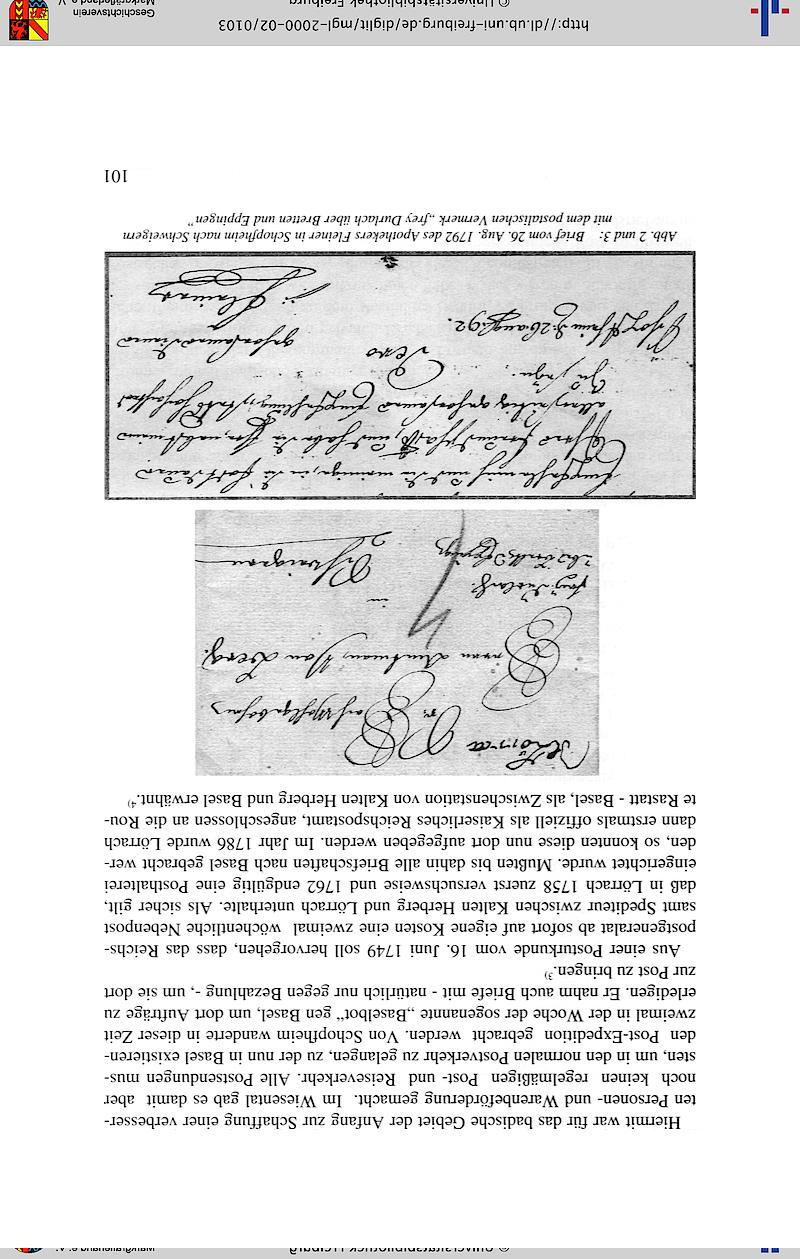 Hiermit war für das badische Gebiet der Anfang zur Schaffung einer verbesser-
ten Personen- und Warenbeförderung gemacht. Im Wiesental gab es damit aber
noch keinen regelmäßigen Post- und Reiseverkehr. Alle Postsendungen mus-
sten, um in den normalen Postverkehr zu gelangen, zu der nun in Basel existieren-
den Post-Expedition gebracht werden. Von Schopfheim wanderte in dieser Zeit
zweimal in der Woche der sogenannte „Baselbot“ gen Basel, um dort Aufträge zu
erledigen. Er nahm auch Briefe mit - natürlich nur gegen Bezahlung -, um sie dort
zur Post zu bringen.3)
Aus einer Posturkunde vom 16. Juni 1749 soll hervorgehen, dass das Reichs-
postgeneralat ab sofort auf eigene Kosten eine zweimal wöchentliche Nebenpost
samt Spediteur zwischen Kalten Herberg und Lörrach unterhalte. Als sicher gilt,
daß in Lörrach 1758 zuerst versuchsweise und 1762 endgültig eine Posthalterei
eingerichtet wurde. Mußten bis dahin alle Briefschaften nach Basel gebracht wer-
den, so konnten diese nun dort aufgegeben werden. Im Jahr 1786 wurde Lörrach
dann erstmals offiziell als Kaiserliches Reichspostamt, angeschlossen an die Rou-
te Rastatt - Basel, als Zwischenstation von Kalten Herberg und Basel erwähnt.4)
in
Schopfheim d: 26 aug: 92.
Fleiner
Abb. 2 und 3: Brief vom 26. Aug. 1792 des Apothekers Fleiner in Schopfheim nach Schweigern
mit dem postalischen Vermerk „frey Durlach über Bretten und Eppingen“
101
http://dl.ub.uni-freiburg.de/diglit/mgl-2000-02/0103
Geschichtsverein
Markgräflerland e. V.
© Universitätsbibliothek Freiburg